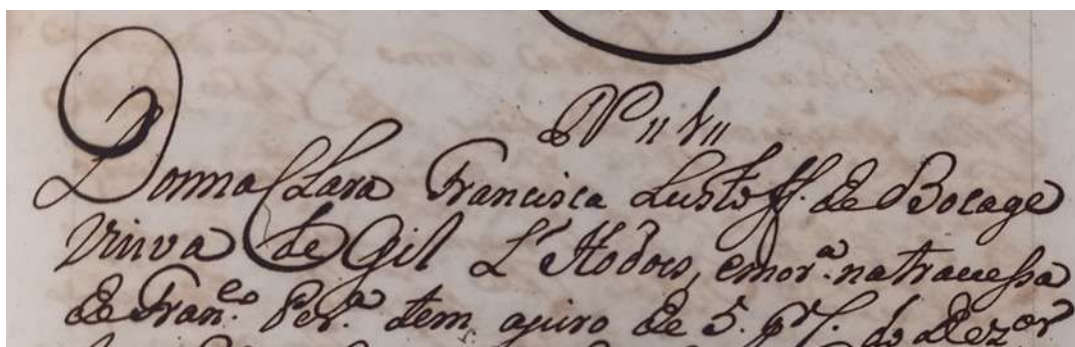 Nº 11
Donna Clara Francisca Lustoff. de Bocage
Viuva de Gil L'Hodois, e mor.ª na trauessa
de Fran.co Per.ª tem ajuro de 5. p.r C. do Dez.or